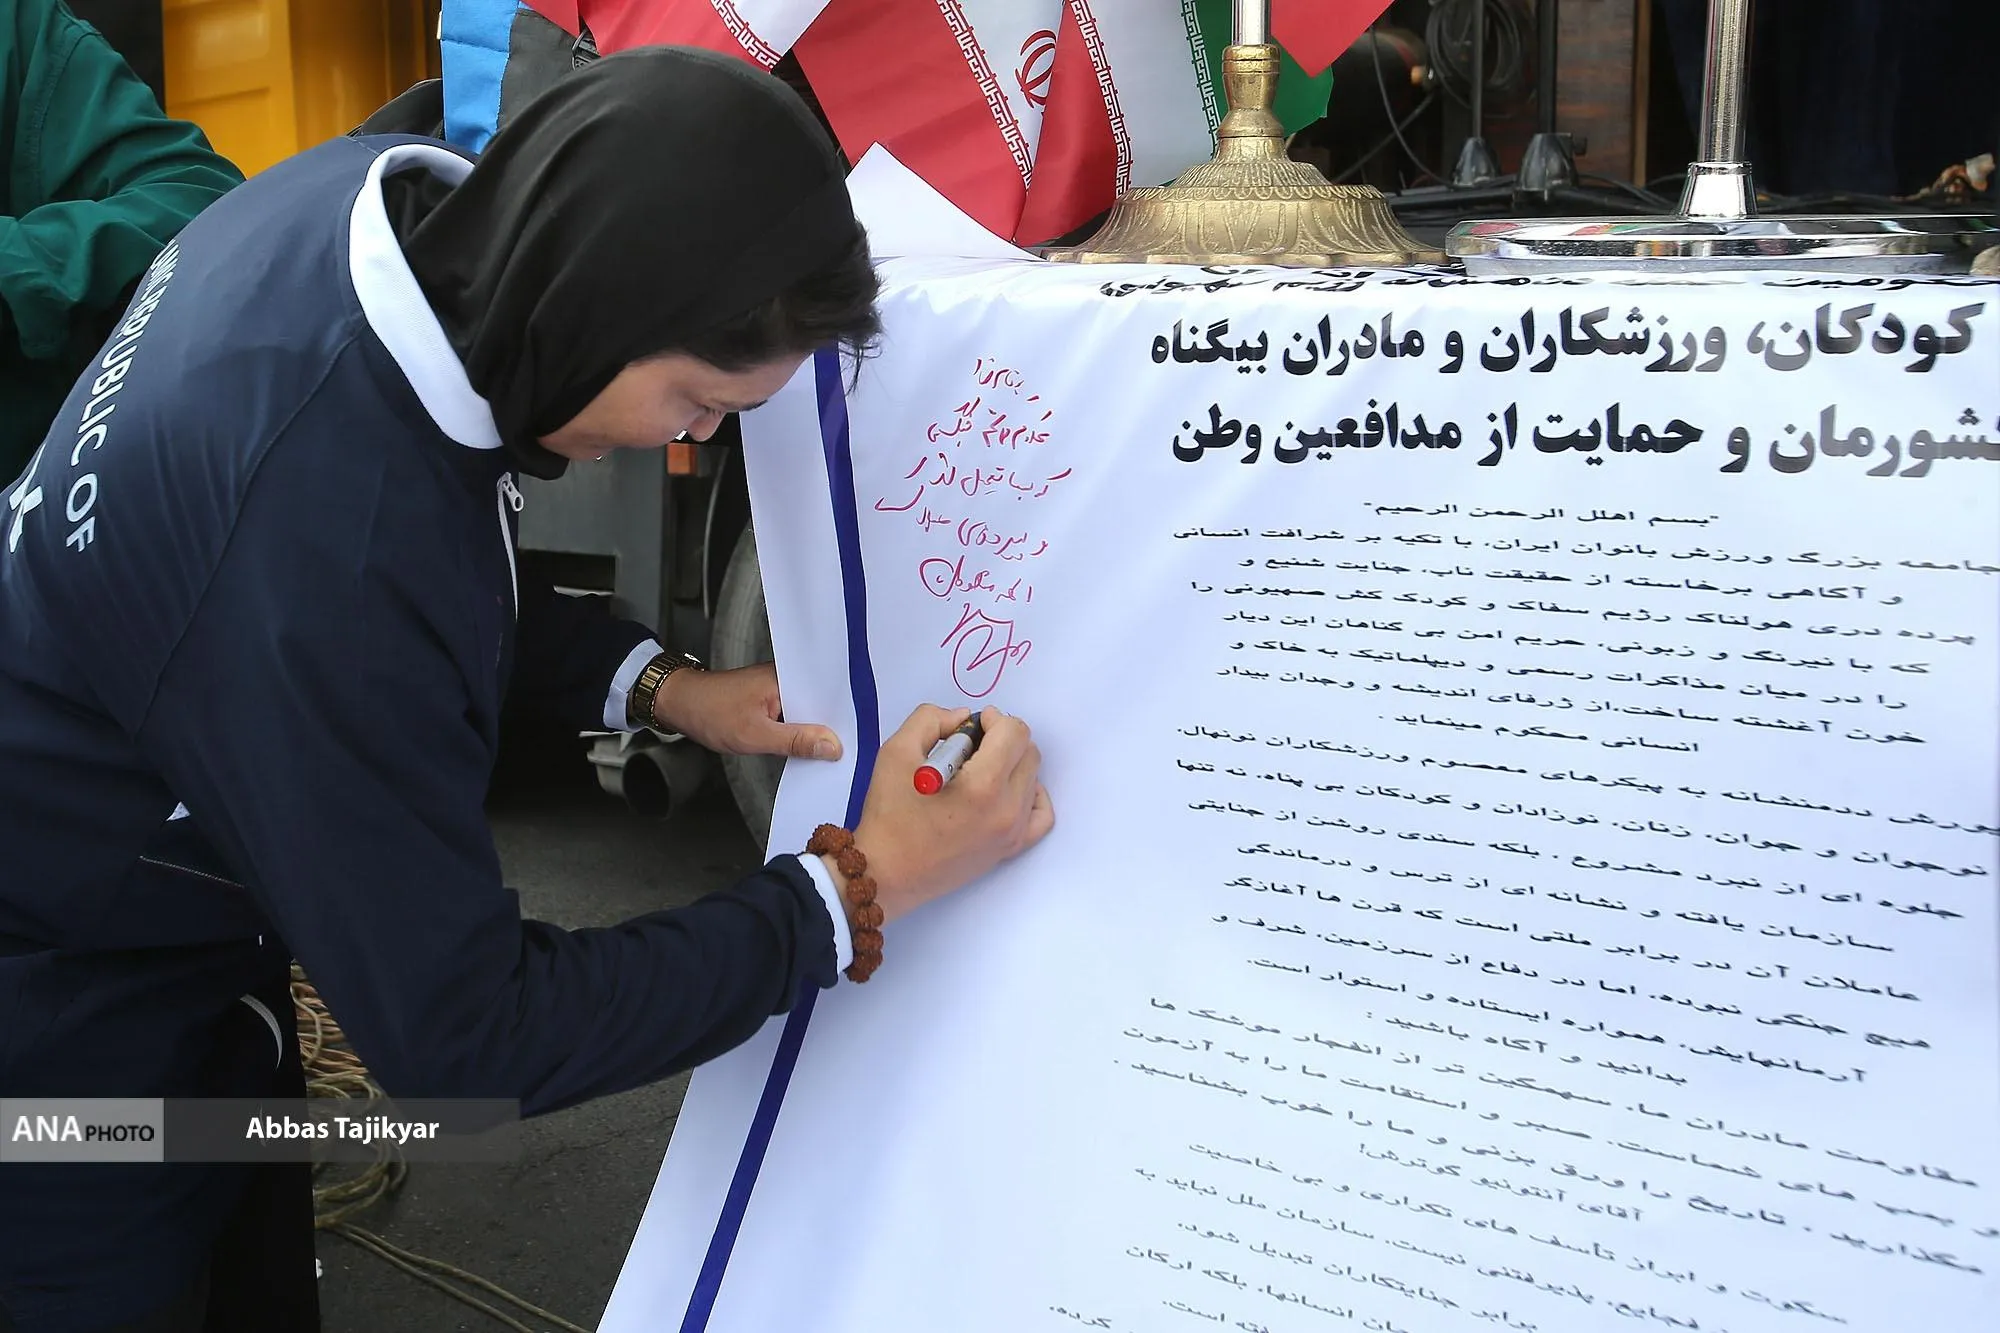 ISLAMIC REPUBLIC OF
کودکان، ورزشکاران و مادران بیگناه
کشورمان و حمایت از مدافعین وطن
"بسم اهلل الرحمن الرحیم"
جامعه بزرگ ورزش بانوان ایران، با تکیه بر شرافت انسانی
و آگاهی برخاسته از حقیقت ناب، جنایت شنیع و
پرده دری هولناک رژیم سفاک و کودک کش صهیونی را
که با نیرنگ و زبونی، حریم امن بی گناهان این دیار
را در میان مذاکرات رسمی و دیپلماتیک به خاک و
خون آغشته ساخت،از ژرفای اندیشه و وجدان بیدار
انسانی محکوم مینماید .
یورش ددمنشانه به پیکرهای معصوم ورزشکاران نونهال،
نوجوان و جوان، زنان، نوزادان و کودکان بی پناه، نه تنها
جلوه ای از نبرد مشروع ، بلکه سندی روشن از جنایتی
سازمان یافته و نشانه ای از ترس و درماندگی
عاملان آن در برابر ملتی است که قرن ها آغازگر
هیچ جنگی نبوده، اما در دفاع از سرزمین، شرف و
آرمانهایش، همواره ایستاده و استوار است.
بدانید و آگاه باشید :
مقاومت مادران ما، سهمگین تر از انفجار موشک ها
و بمب های شماست. صبر و استقامت ما را به آزمون
مگذارید . تاریخ را ورق بزنی و ما را خوب بشناسید .
آقای آنتونیو گوترش!
سکوت و ابراز تأسف های تکراری و بی خاصیت
فجایع، پذیرفتنی نیست، سازمان ملل نباید به
برابر جنایتکاران تبدیل شود.
انسانها، بلکه ارکان
است.
کرده،
ANA PHOTO
Abbas Tajikyar